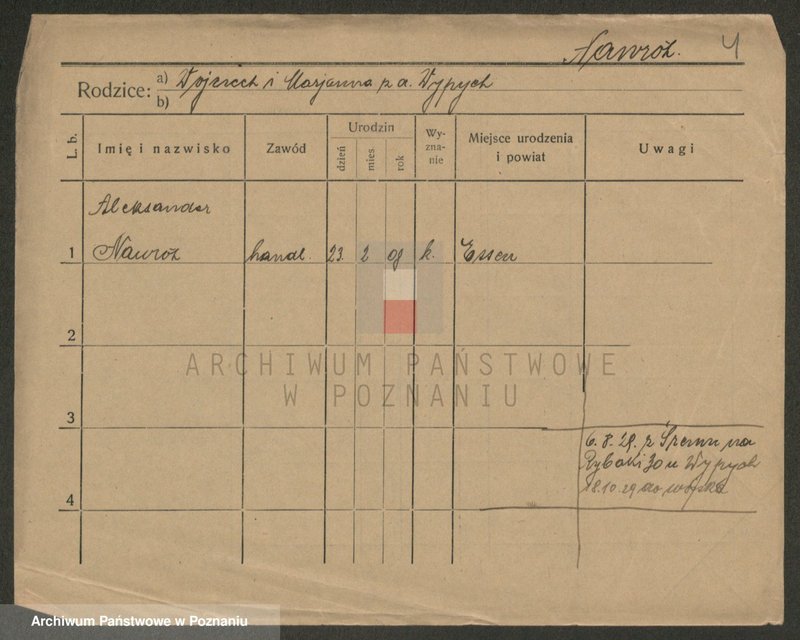 Nawroż. 4
Rodzice: a) Wojciech i Marjanna z d. Wypych
b)
L. b.
Imię i nazwisko
Zawód
Urodzin
dzień
mies
rok
Wy-
zna-
nie
Miejsce urodzenia
i powiat
Uwagi
Aleksander
1 Nawroż handl. 23. 2 08 k. Essen
2
ARCHIWUM PAŃSTWOWE
W POZNANIU
3
6.8.29. z Śremu na
Rybaki 30 u Wypych
18.10.29 do wojska
4
Archiwum Państwowe w Poznaniu